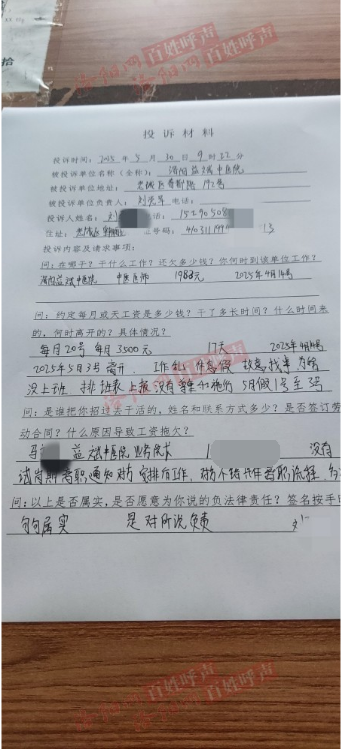 拾
洛阳网 百姓呼声
投 诉 材 料
投诉时间：2025 年 5 月 10 日 9 时 27 分
被投诉单位名称（全称）：洛阳益斌中医院
被投诉单位地址：老城区 192号
被投诉单位负责人：刘 电话：
投诉人姓名：刘 电话：15290508
住址：老城区 号码：410311199 13
投诉内容及请求事项：
问：在哪子？干什么工作？还欠多少钱？你何时到该单位工作？
洛阳益斌中医院 中医医师 1988元 2025年4月14号
问：约定每月或天工资是多少钱？干了多长时间？什么时间来
的，何时离开的？具体情况？
每月20号 每月3500元 17天 2025年4月14号
2025年5月3号离开， 工作 休息 故意找事 为难
没上班 排班表上报没有 5月假1号至3号
洛阳网 百姓呼声
问：是谁把你招过去干活的，姓名和联系方式多少？是否签订劳
动合同？什么原因导致工资拖欠？
马 益斌中医院 1 没有
试岗期离职通知对方安排后工作，对方不给 离职流程，
问：以上是否属实，是否愿意为你说的负法律责任？签名按手印
句句属实 是 对所说负责
洛阳网 百姓呼声